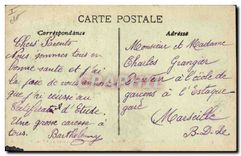 CARTE POSTALE
Correspondance
Adresse
Chers Parents
Nous sommes tous en
bonne santé et j'ai
la joie de vous
que j'ai réussi au
Certificat d'Etude
Une grosse caresse à
tous. Barthélemy
Monsieur et Madame
Charles Grangier
à l'école de
garçons à l'estaque
gare
Marseille
B-D-R